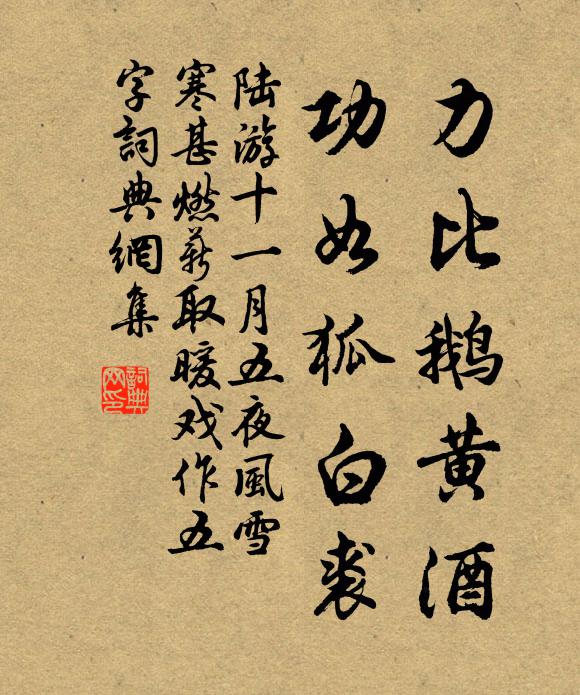 力比鹅黄酒
功如狐白裘
陆游十一月五夜風雪
寒甚燃薪取暖戏作五
字詞典網集
詞典
网印